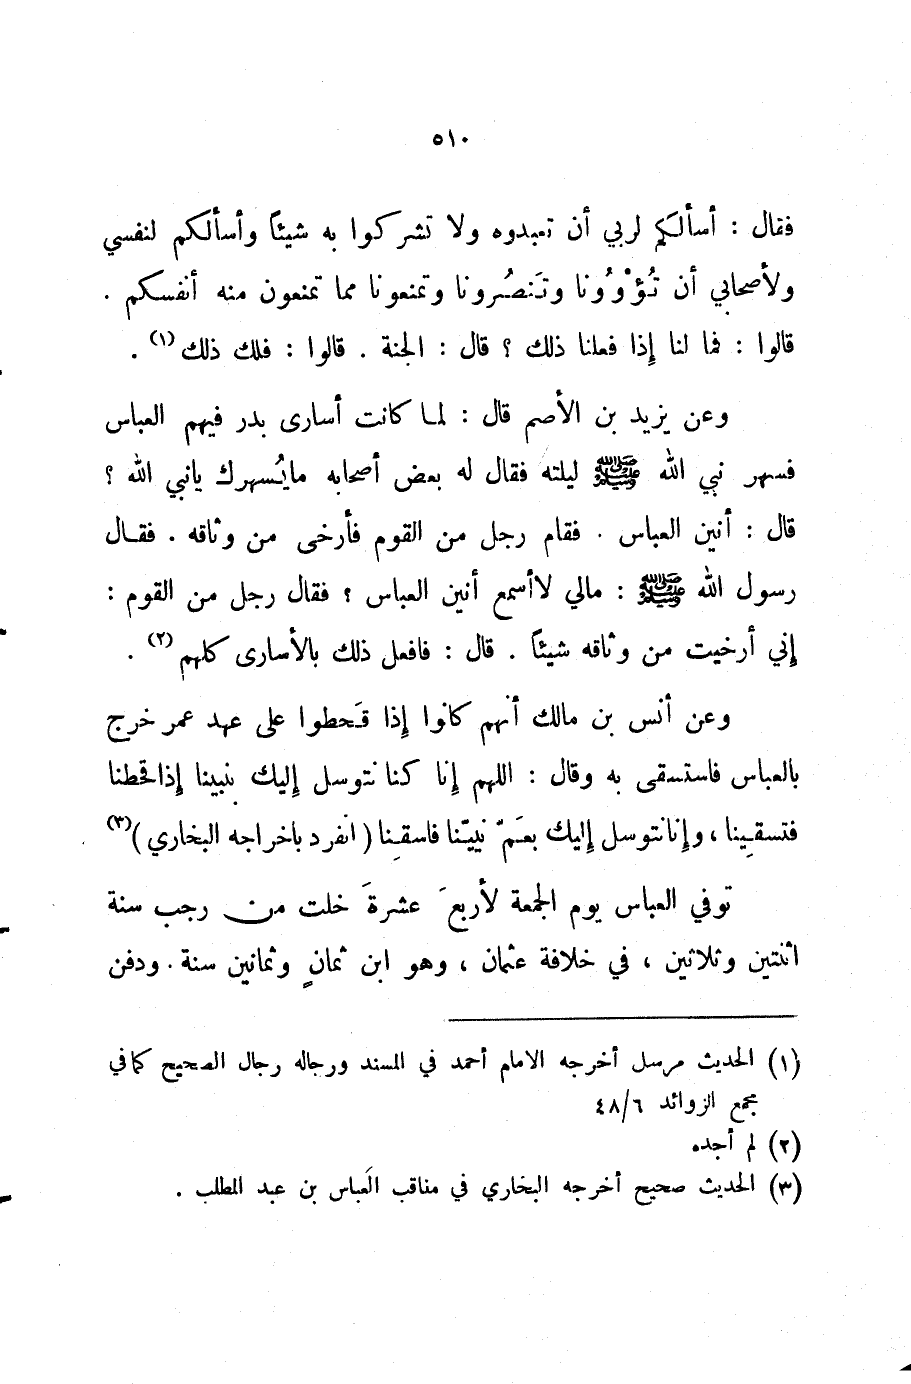 ٥١٠
فقال : أسألكم لربي أن تعبدوه ولا تشركوا به شيئاً وأسألكم لنفسي
ولأصحابي أن تُؤْوُونا وتَنصُرونا وتمنعونا مما تمنعون منه أنفسكم .
قالوا : فما لنا إذا فعلنا ذلك ؟ قال : الجنة . قالوا : فلك ذلك (١) .
وعن يزيد بن الأصم قال : لما كانت أسارى بدر فيهم العباس
فسهر نبي الله ﷺ ليلته فقال له بعض أصحابه مايُسهرك يانبي الله ؟
قال : أنين العباس . فقام رجل من القوم فأرخى من وثاقه . فقال
رسول الله ﷺ : مالي لاأسمع أنين العباس ؟ فقال رجل من القوم :
إني أرخيت من وثاقه شيئاً . قال : فافعل ذلك بالأسارى كلهم (٢) .
وعن أنس بن مالك أنهم كانوا إذا قَحطوا على عهد عمر خرج
بالعباس فاستسقى به وقال : اللهم إنا كنا نتوسل إليك بنبينا إذاقحطنا
فتسقينا ، وإنانتوسل إليك بعَمّ نبيّنا فاسقنا ( انفرد باخراجه البخاري ) (٣)
توفي العباس يوم الجمعة لأربعَ عشرةَ خلت من رجب سنة
اثنتين وثلاثين ، في خلافة عثمان ، وهو ابن ثمانٍ وثمانين سنة . ودفن
(١) الحديث مرسل أخرجه الامام أحمد في المسند ورجاله رجال الصحيح كما في
مجمع الزوائد ٤٨/٦
(٢) لم أجده
(٣) الحديث صحيح أخرجه البخاري في مناقب العباس بن عبد المطلب .